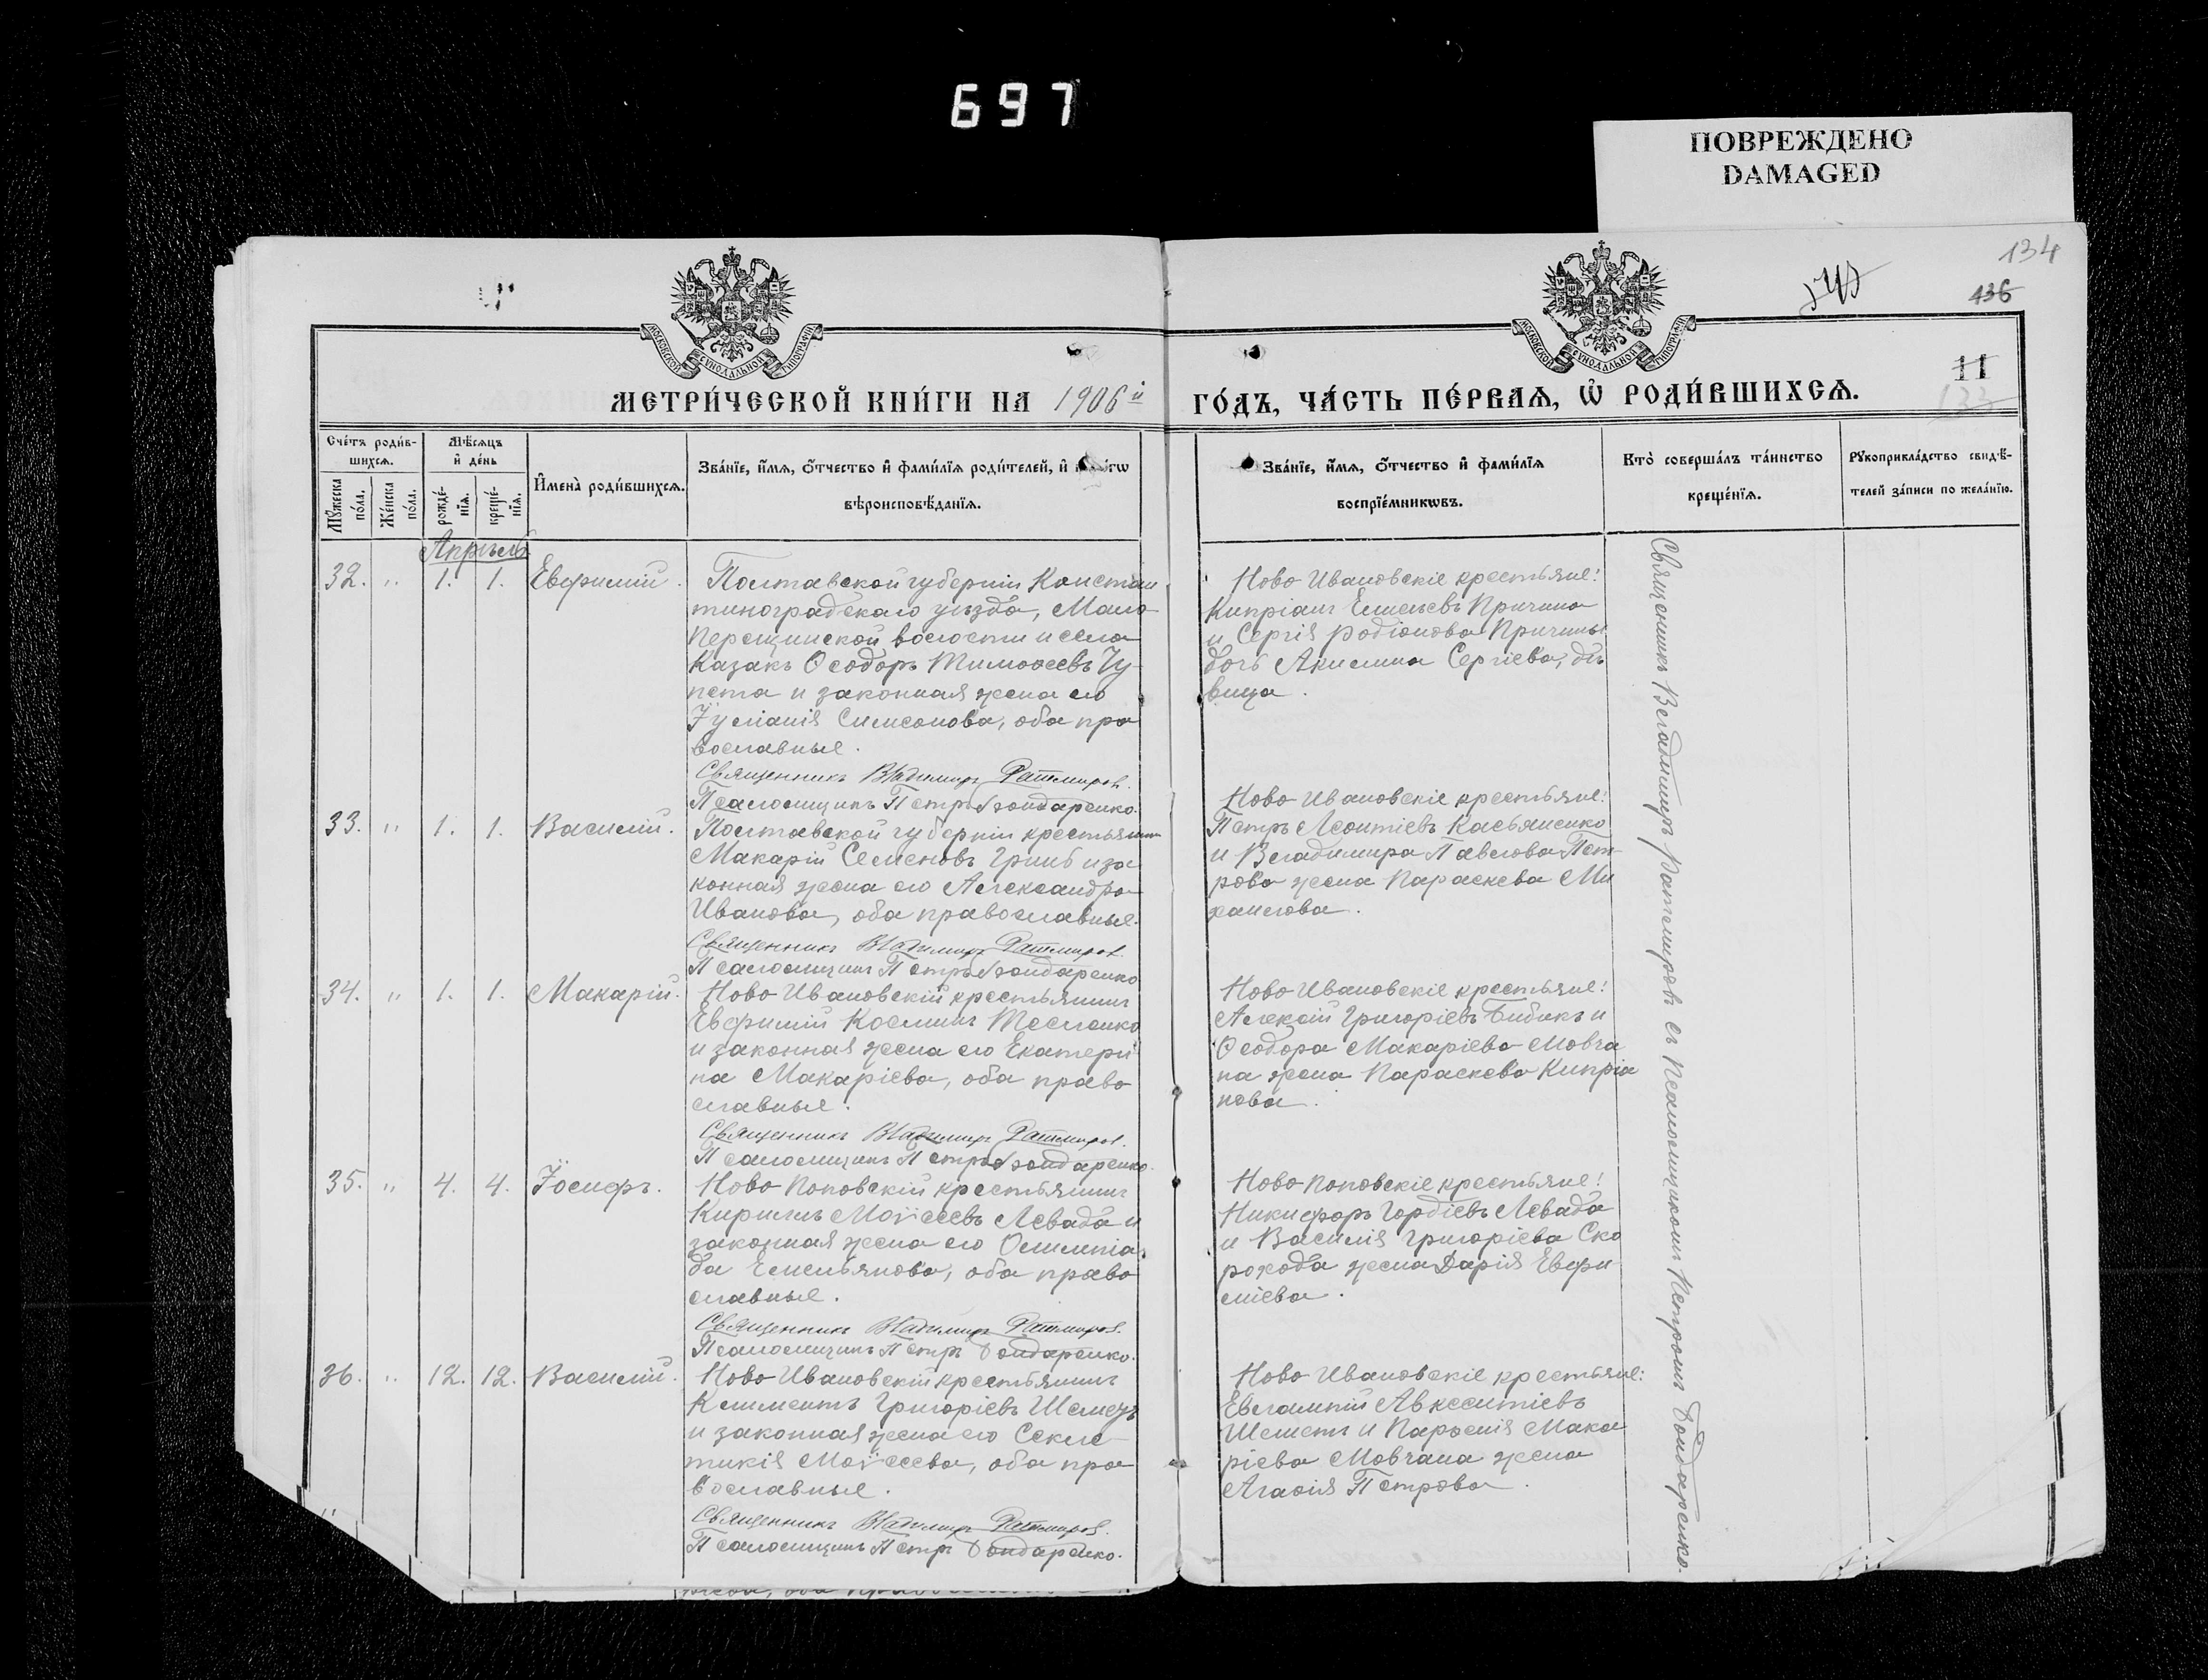 697
ПОВРЕЖДЕНО
DAMAGED
134
136
МОСКОВСКОЙ СУНОДАЛЬНОЙ ТИПОГРАФІИ
МОСКОВСКОЙ СУНОДАЛЬНОЙ ТИПОГРАФІИ
11
133
МЕТРИ́ЧЕСКОЙ КНИ́ГИ НА 1906й
ГО́ДЪ, ЧА́СТЬ ПЕ́РВАѦ, Ѡ҆ РОДИ́ВШИХСѦ.
Сче́тъ роди́в-
шихсѧ.
Мꙋ́жеска по́ла.
Же́нска по́ла.
Мѣ́сѧцъ
и҆ де́нь
рожде́-
нїѧ.
креще́-
нїѧ.
И҆мена̀ роди́вшихсѧ.
Зва́нїе, и҆́мѧ, ѻ҆́тчество и҆ фами́лїѧ роди́телей, и҆
вѣроисповѣ́данїѧ.
Зва́нїе, и҆́мѧ, ѻ҆́тчество и҆ фами́лїѧ
воспрїе́мникѡвъ.
Кто̀ соверша́лъ та́инство
креще́нїѧ.
Рꙋкоприкла́дство свидѣ́-
телей за́писи по жела́нїю.
Апрѣль
32. " 1. 1. Евфимій.
Полтавской губерніи Констан
тиноградскаго уѣзда, Мало-
Перещинской волости и села
Казакъ Ѳеодоръ Тимоѳеевъ Чу-
пета и законная жена его
Іуліанія Симеонова, оба пра
вославные.
Священникъ Владимиръ Ратмировъ.
Псаломщикъ Петръ Бондаренко.
Ново Ивановскіе крестьяне:
Кипріанъ Емельевъ Причина
и Сергія Родіонова Причины
дочь Акилина Сергіева, дѣ
вица.
33. " 1. 1. Василій.
Полтавской губерніи крестьянинъ
Макарій Семеновъ Гринь и за
конная жена его Александра
Иванова, оба православные.
Священникъ Владимиръ Ратмировъ.
Псаломщикъ Петръ Бондаренко
Ново Ивановскіе крестьяне:
Петръ Леонтіевъ Касьяненко
и Владимира Павлова Пет-
рова жена Параскева Ми
хаилова.
34. " 1. 1. Макарій.
Ново Ивановскій крестьянинъ
Евфимій Косминъ Тесленко
и законная жена его Екатери
на Макаріева, оба право
славные.
Священникъ Владимиръ Ратмировъ.
Псаломщикъ Петръ Бондаренко.
Ново Ивановскіе крестьяне:
Алексій Григоріевъ Бибикъ и
Ѳеодора Макаріева Мовча
на жена Параскева Кипріа
нова.
35. " 4. 4. Іосифъ.
Ново Поповскій крестьянинъ
Кириллъ Моѵсеевъ Левада и
законная жена его Олимпіа
да Емельянова, оба право
славные.
Священникъ Владимиръ Ратмировъ.
Псаломщикъ Петръ Бондаренко.
Ново Поповскіе крестьяне:
Никифоръ Гордіевъ Левада
и Василія Григоріева Ско
рохода жена Дарія Евфи
міева.
36. " 12. 12. Василій.
Ново Ивановскій крестьянинъ
Климентъ Григоріевъ Шемецъ
и законная жена его Секле-
тикія Моѵсеева, оба пра
вославные.
Священникъ Владимиръ Ратмировъ.
Псаломщикъ Петръ Бондаренко.
Ново Ивановскіе крестьяне:
Евлампій Авксентіевъ
Шеметъ и Парѳенія Мака
ріева Мовчана жена
Агаѳія Петрова.
Священникъ Владимиръ Ратмировъ съ Псаломщикомъ Петромъ Бондаренко.